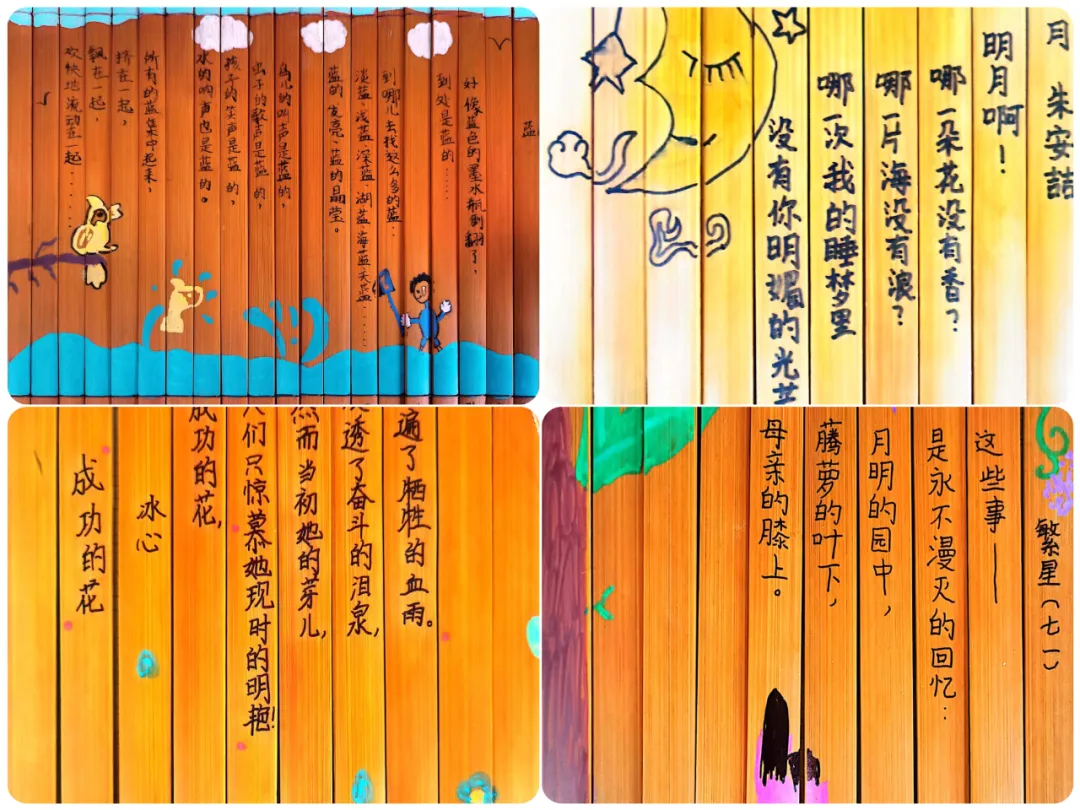 蓝
好像蓝色的墨水瓶到翻了，
到处是蓝的……
到哪儿去找这么多的蓝：
淡蓝、浅蓝、深蓝、湖蓝、海蓝、天蓝……
蓝的发亮、蓝的晶莹。
鸟儿的叫声是蓝的，
虫子的歌声是蓝的，
孩子的笑声是蓝的，
水的响声也是蓝的。
所有的蓝集中起来，
挤在一起，
飘在一起，
欢快地流动在一起……
月 朱安喆
明月啊！
哪一朵花没有香？
哪一片海没有浪？
哪一次我的睡梦里
没有你明媚的光芒
成功的花
冰心
成功的花，
人们只惊慕她现时的明艳!
然而当初她的芽儿，
透了奋斗的泪泉，
遍了牺牲的血雨。
繁星（七一）
这些事——
是永不漫灭的回忆：
月明的园中，
藤萝的叶下，
母亲的膝上。